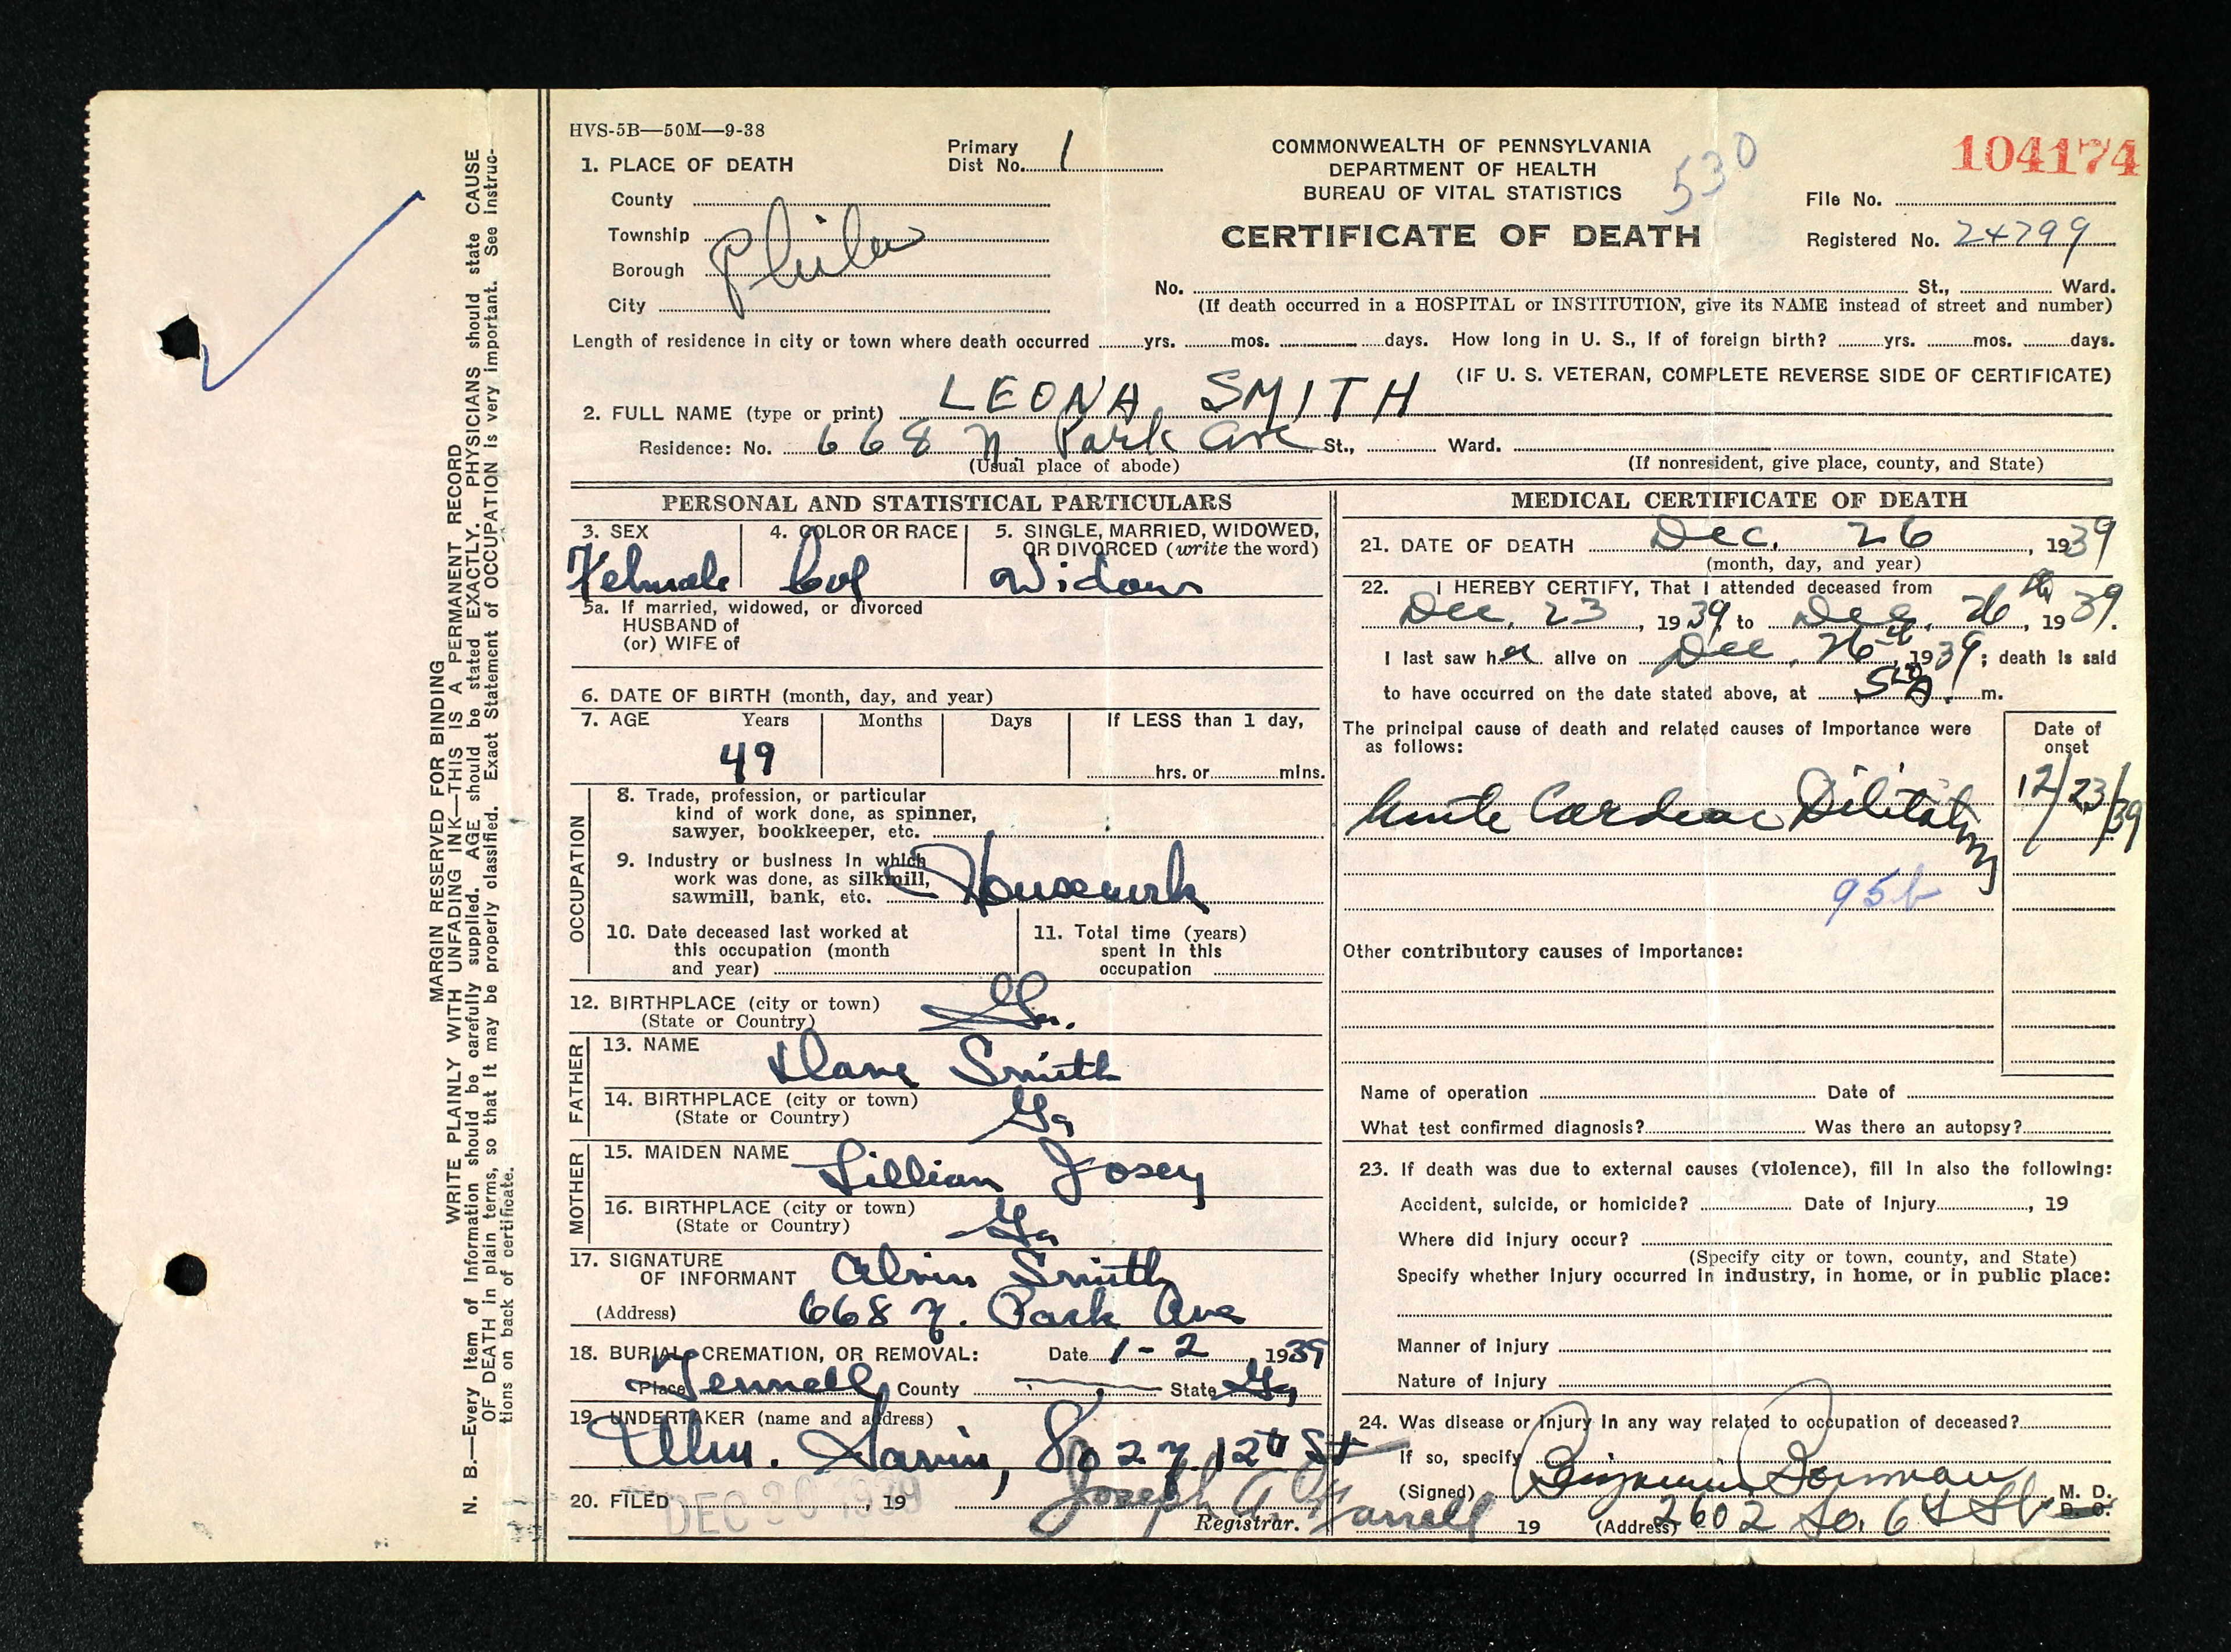 HVS-5B—50M—9-38
1. PLACE OF DEATH
Primary
Dist No. 1
County
Township
Borough
City
Phila
COMMONWEALTH OF PENNSYLVANIA
DEPARTMENT OF HEALTH
BUREAU OF VITAL STATISTICS
530
CERTIFICATE OF DEATH
104174
File No.
Registered No. 24799
No. St., Ward.
(If death occurred in a HOSPITAL or INSTITUTION, give its NAME instead of street and number)
Length of residence in city or town where death occurred yrs. mos. days. How long in U. S., if of foreign birth? yrs. mos. days.
(IF U. S. VETERAN, COMPLETE REVERSE SIDE OF CERTIFICATE)
2. FULL NAME (type or print) LEONA SMITH
Residence: No. 668 N. Park Ave St., Ward.
(Usual place of abode) (If nonresident, give place, county, and State)
PERSONAL AND STATISTICAL PARTICULARS
3. SEX 4. COLOR OR RACE 5. SINGLE, MARRIED, WIDOWED,
OR DIVORCED (write the word)
Female Col Widow
5a. If married, widowed, or divorced
HUSBAND of
(or) WIFE of
6. DATE OF BIRTH (month, day, and year)
7. AGE Years Months Days If LESS than 1 day,
49 hrs. or mins.
OCCUPATION
8. Trade, profession, or particular
kind of work done, as spinner,
sawyer, bookkeeper, etc.
9. Industry or business in which
work was done, as silkmill,
sawmill, bank, etc. Housework
10. Date deceased last worked at
this occupation (month
and year)
11. Total time (years)
spent in this
occupation
12. BIRTHPLACE (city or town)
(State or Country) Ga.
FATHER
13. NAME Dave Smith
14. BIRTHPLACE (city or town)
(State or Country) Ga
MOTHER
15. MAIDEN NAME Lillian Josey
16. BIRTHPLACE (city or town)
(State or Country) Ga
17. SIGNATURE
OF INFORMANT Alvin Smith
(Address) 668 N. Park Ave
18. BURIAL, CREMATION, OR REMOVAL: Date 1-2, 1939
Place Tennell, County State Ga
19. UNDERTAKER (name and address)
Wm. 802 N. 12th St
20. FILED DEC 30 1939, 19 Joseph A. Farrell
Registrar.
MEDICAL CERTIFICATE OF DEATH
21. DATE OF DEATH Dec. 26, 1939
(month, day, and year)
22. I HEREBY CERTIFY, That I attended deceased from
Dec. 23, 1939, to Dec. 26th, 1939.
I last saw her alive on Dec, 26th, 1939; death is said
to have occurred on the date stated above, at A. m.
The principal cause of death and related causes of importance were
as follows:
Date of
onset
Acute Cardiac Dilitation
12/23/39
95b
Other contributory causes of importance:
Name of operation Date of
What test confirmed diagnosis? Was there an autopsy?
23. If death was due to external causes (violence), fill in also the following:
Accident, suicide, or homicide? Date of Injury, 19
Where did injury occur?
(Specify city or town, county, and State)
Specify whether injury occurred in industry, in home, or in public place:
Manner of injury
Nature of injury
24. Was disease or injury in any way related to occupation of deceased?
If so, specify
(Signed) Benjamin M. D.
D. O.
19 (Address) 2602 So. St
MARGIN RESERVED FOR BINDING
WRITE PLAINLY WITH UNFADING INK—THIS IS A PERMANENT RECORD
N. B.—Every item of information should be carefully supplied. AGE should be stated EXACTLY. PHYSICIANS should state CAUSE
OF DEATH in plain terms, so that it may be properly classified. Exact Statement of OCCUPATION is very important. See instruc-
tions on back of certificate.